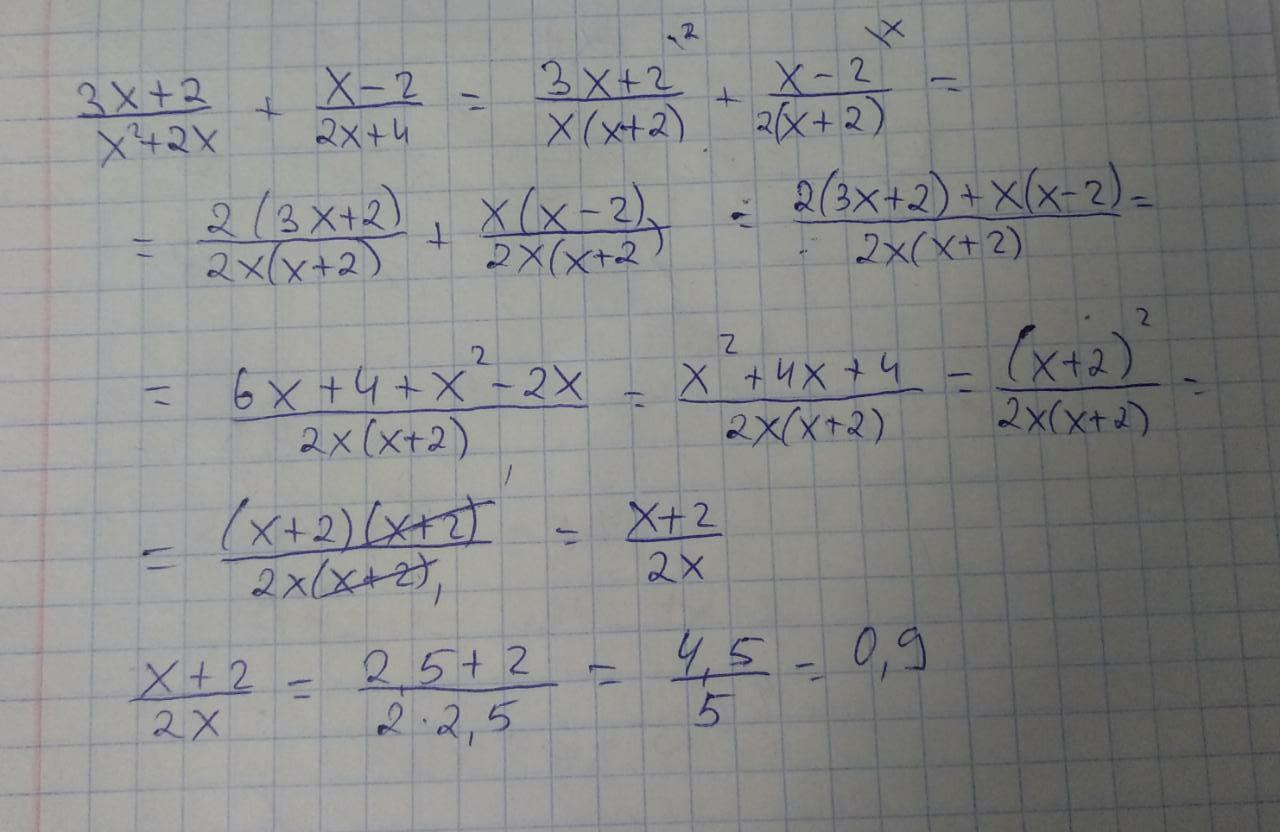 (3x+2)/(x²+2x) + (x-2)/(2x+4) = (3x+2)/(x(x+2)) \2 + (x-2)/(2(x+2)) \x =
= 2(3x+2)/(2x(x+2)) + x(x-2)/(2x(x+2)) = (2(3x+2)+x(x-2))/(2x(x+2)) =
= (6x+4+x²-2x)/(2x(x+2)) = (x²+4x+4)/(2x(x+2)) = (x+2)²/(2x(x+2)) =
= (x+2)(x+2)/(2x(x+2)) = (x+2)/(2x)
(x+2)/(2x) = (2,5+2)/(2·2,5) = 4,5/5 = 0,9